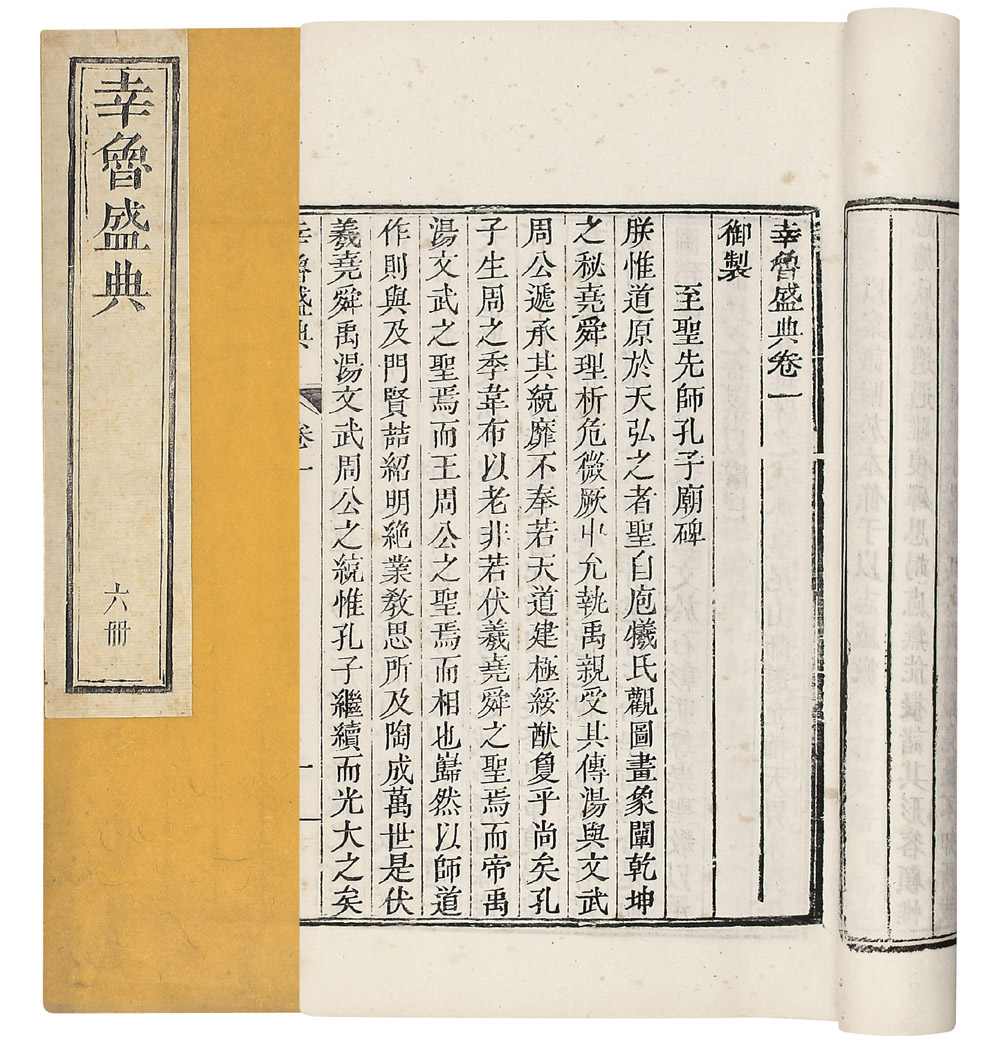 幸魯盛典
六冊
幸魯盛典卷一
御製
至聖先師孔子廟碑
朕惟道原於天弘之者聖自庖犧氏觀圖畫象闡乾坤
之秘堯舜理析危微厥中允執禹親受其傳湯與文武
周公遞承其統靡不奉若天道建極綏猷敻乎尚矣孔
子生周之季韋布以老非若伏羲堯舜之聖焉而帝禹
湯文武之聖焉而王周公之聖焉而相也巋然以師道
作則與及門賢喆紹明絶業敎思所及陶成萬世是伏
羲堯舜禹湯文武周公之統惟孔子繼續而光大之矣
幸魯盛典 卷一 一